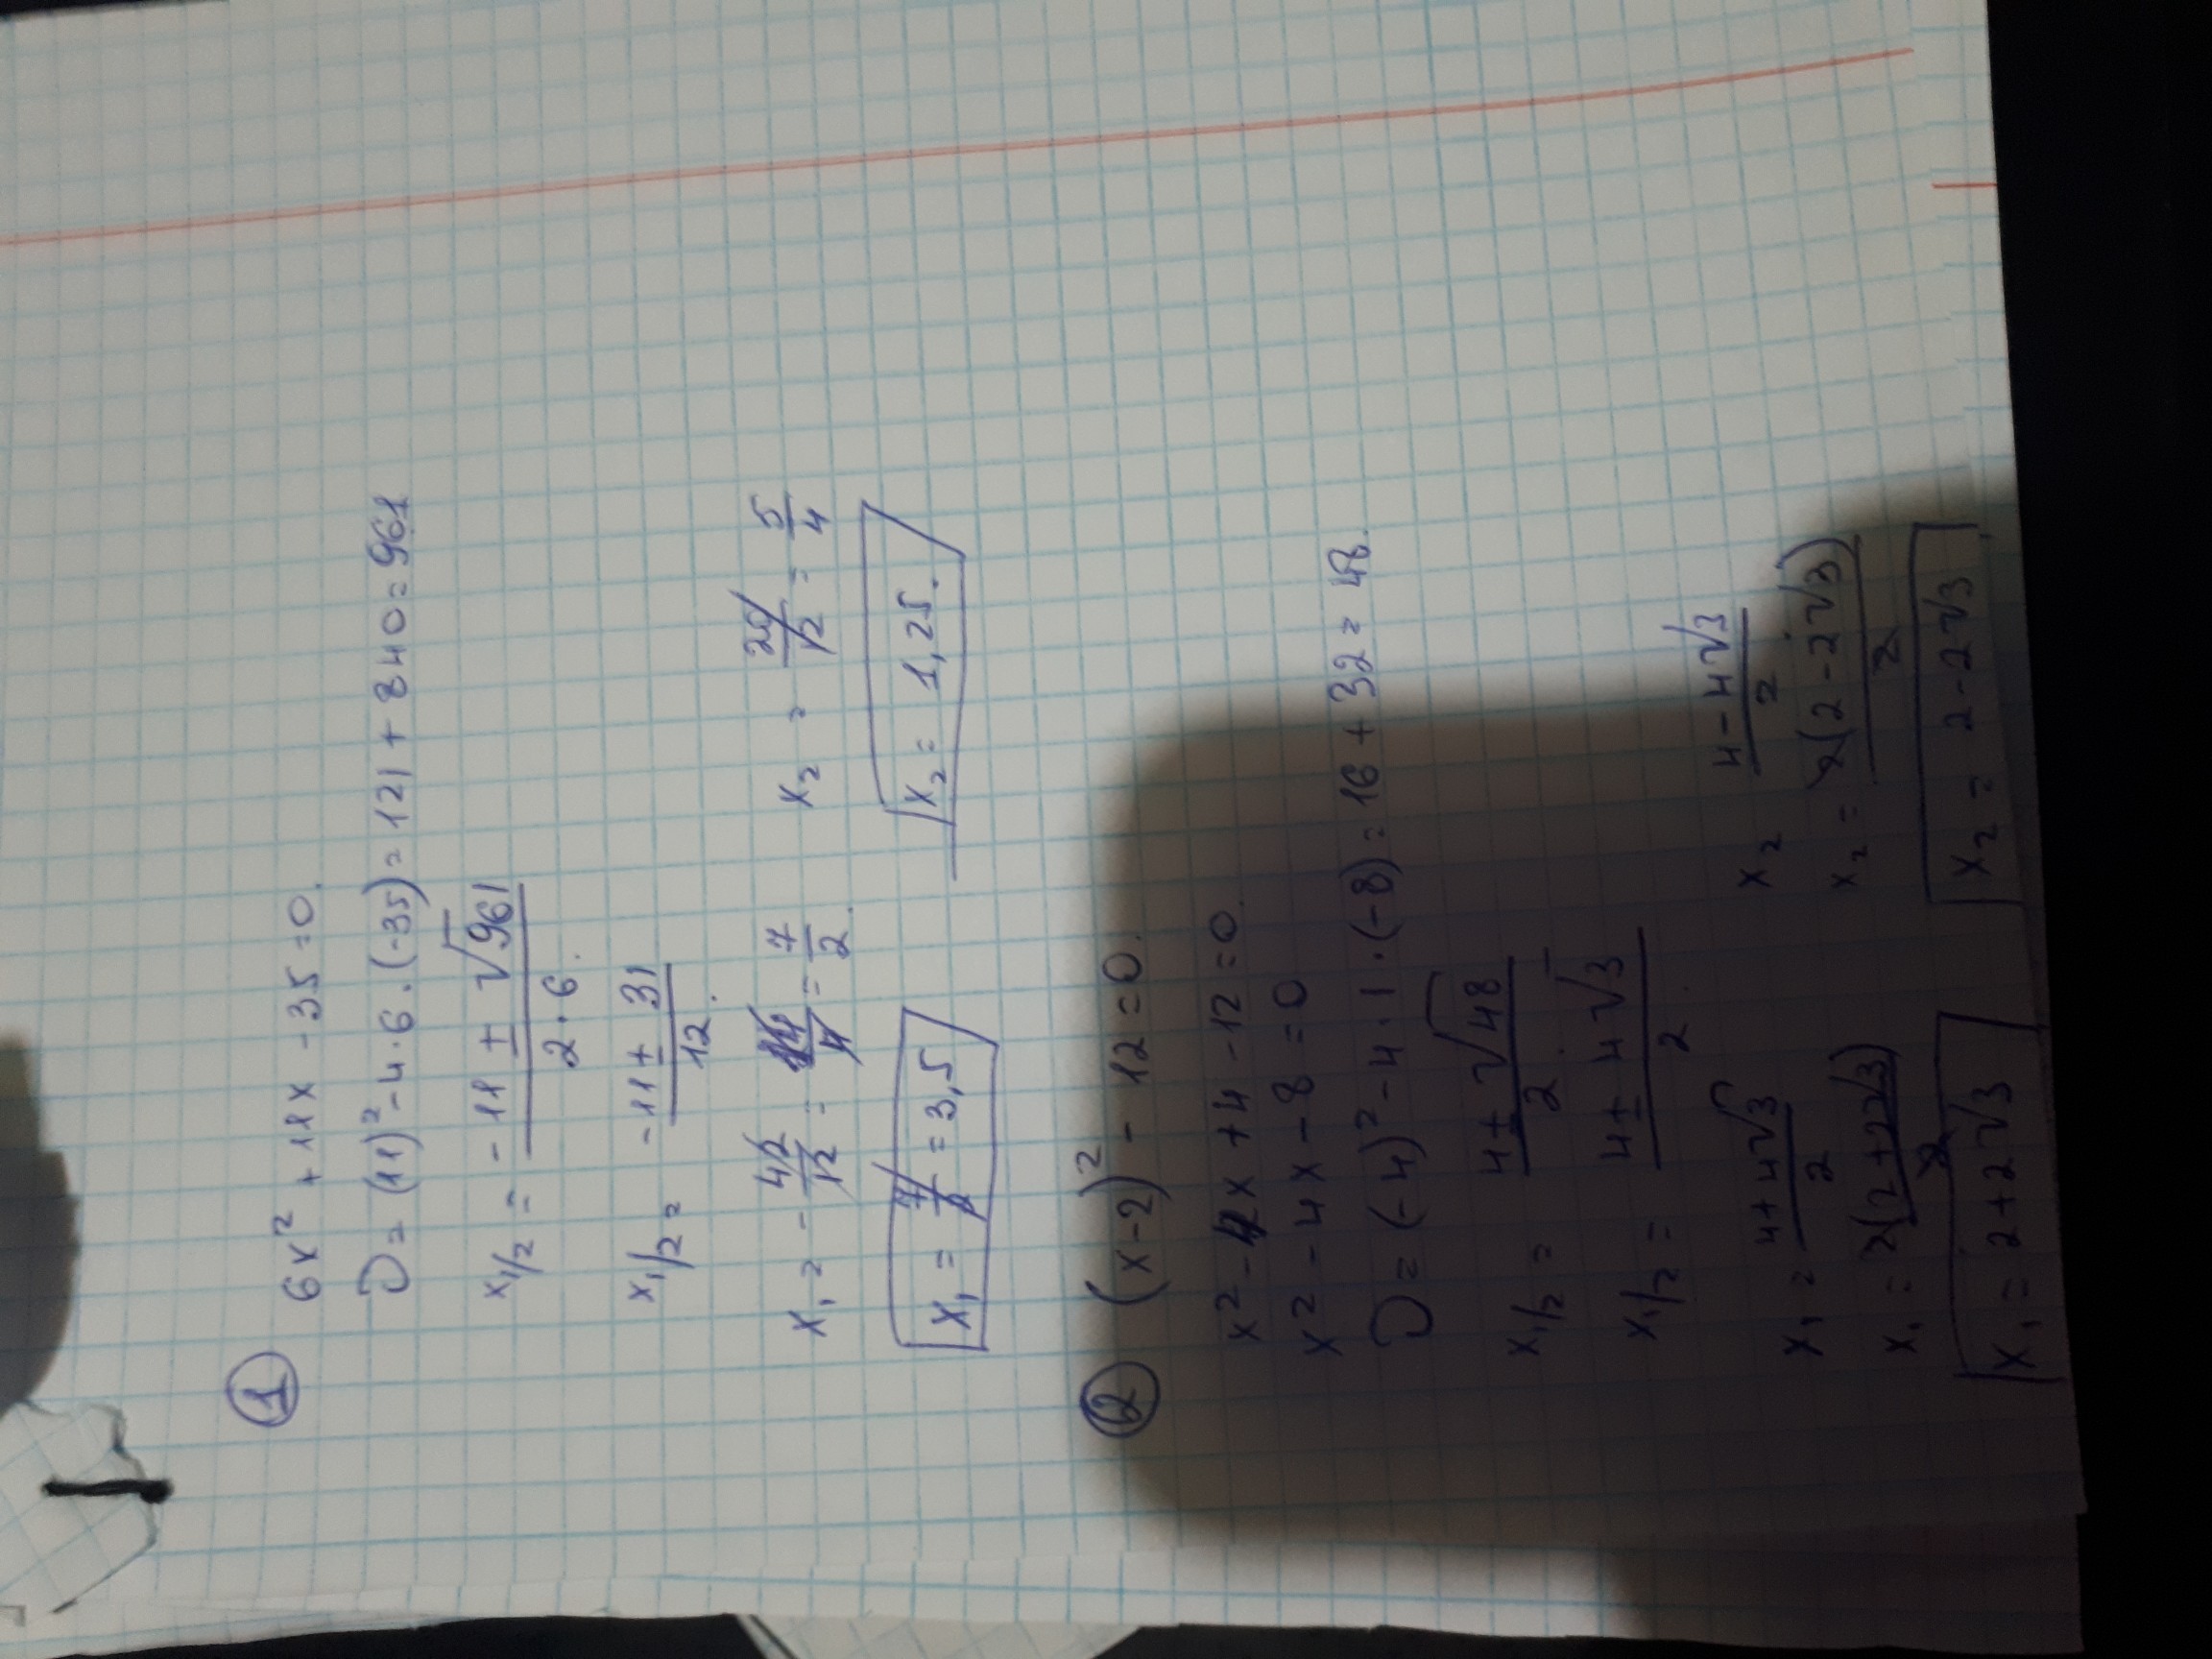 ① 6x² + 11x - 35 = 0.
D = (11)² - 4 · 6 · (-35) = 121 + 840 = 961
x₁/₂ = (-11 ± √961) / (2 · 6).
x₁/₂ = (-11 ± 31) / 12.
x₁ = - 42/12 = = 7/2. x₂ = 20/12 = 5/4
x₁ = 7/2 = 3,5 x₂ = 1,25.
② (x-2)² - 12 = 0.
x² - 4x + 4 - 12 = 0.
x² - 4x - 8 = 0
D = (-4)² - 4 · 1 · (-8) = 16 + 32 = 48.
x₁/₂ = (4 ± √48) / 2.
x₁/₂ = (4 ± 4√3) / 2.
x₁ = (4 + 4√3) / 2 x₂ (4 - 4√3) / 2
x₁ = 2(2 + 2√3) / 2 x₂ = 2(2 - 2√3) / 2
x₁ = 2 + 2√3 x₂ = 2 - 2√3